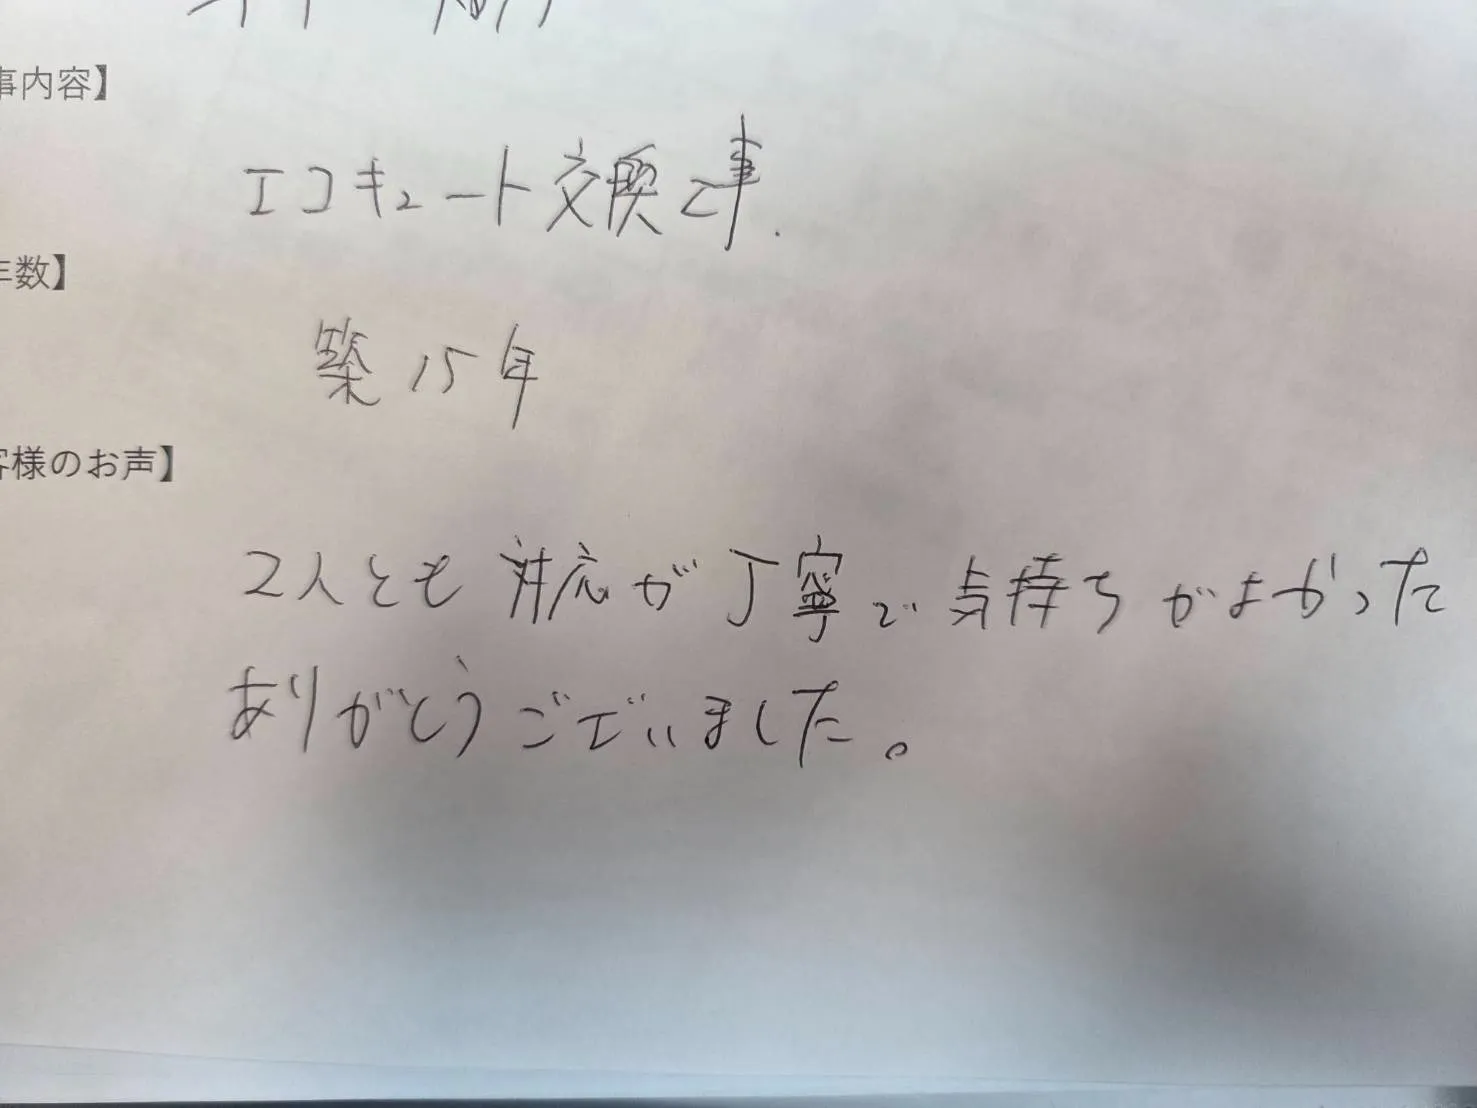 事内容】
エコキュート交換工事.
年数】
築15年
客様のお声】
2人とも対応が丁寧で気持ちがよかった
ありがとうございました。